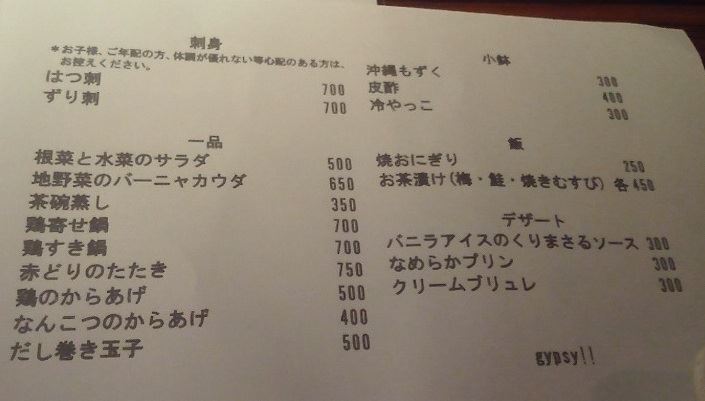 刺身
*お子様、ご年配の方、体調が優れない等心配のある方は、
お控えください。
はつ刺 700
ずり刺 700
一品
根菜と水菜のサラダ 500
地野菜のバーニャカウダ 650
茶碗蒸し 350
鶏寄せ鍋 700
鶏すき鍋 700
赤どりのたたき 750
鶏のからあげ 500
なんこつのからあげ 400
だし巻き玉子 500
小鉢
沖縄もずく 300
皮酢 400
冷やっこ 300
飯
焼おにぎり 250
お茶漬け(梅・鮭・焼きむすび) 各450
デザート
バニラアイスのくりまさるソース 300
なめらかプリン 300
クリームブリュレ 300
gypsy!!